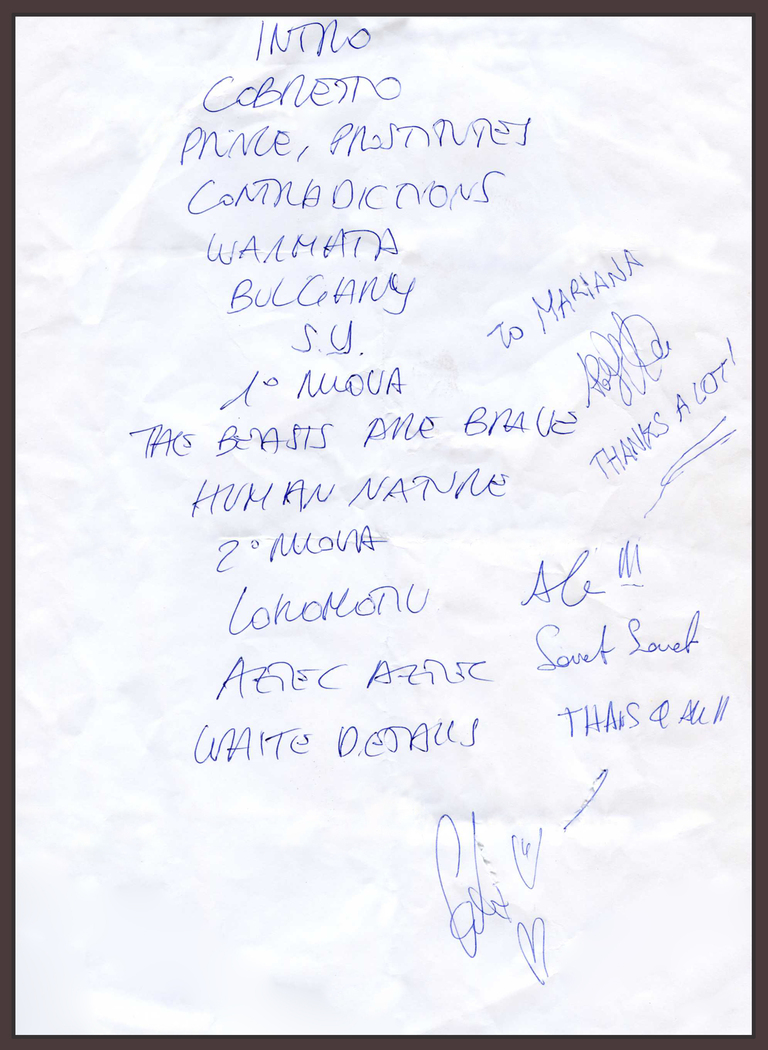 INTRO
COBRETTO
PRINCE, PROSTITUTES
CONTRADICTIONS
WARMATA
BULGARY
S.U.
1° NUOVA
THE BEASTS ARE BRAVE
HUMAN NATURE
2° NUOVA
LOKOMOTIV
AZTEC AZTEC
WHITE DETAILS
TO MARIANA
THANKS A LOT!
Ale !!!
Soviet Soviet